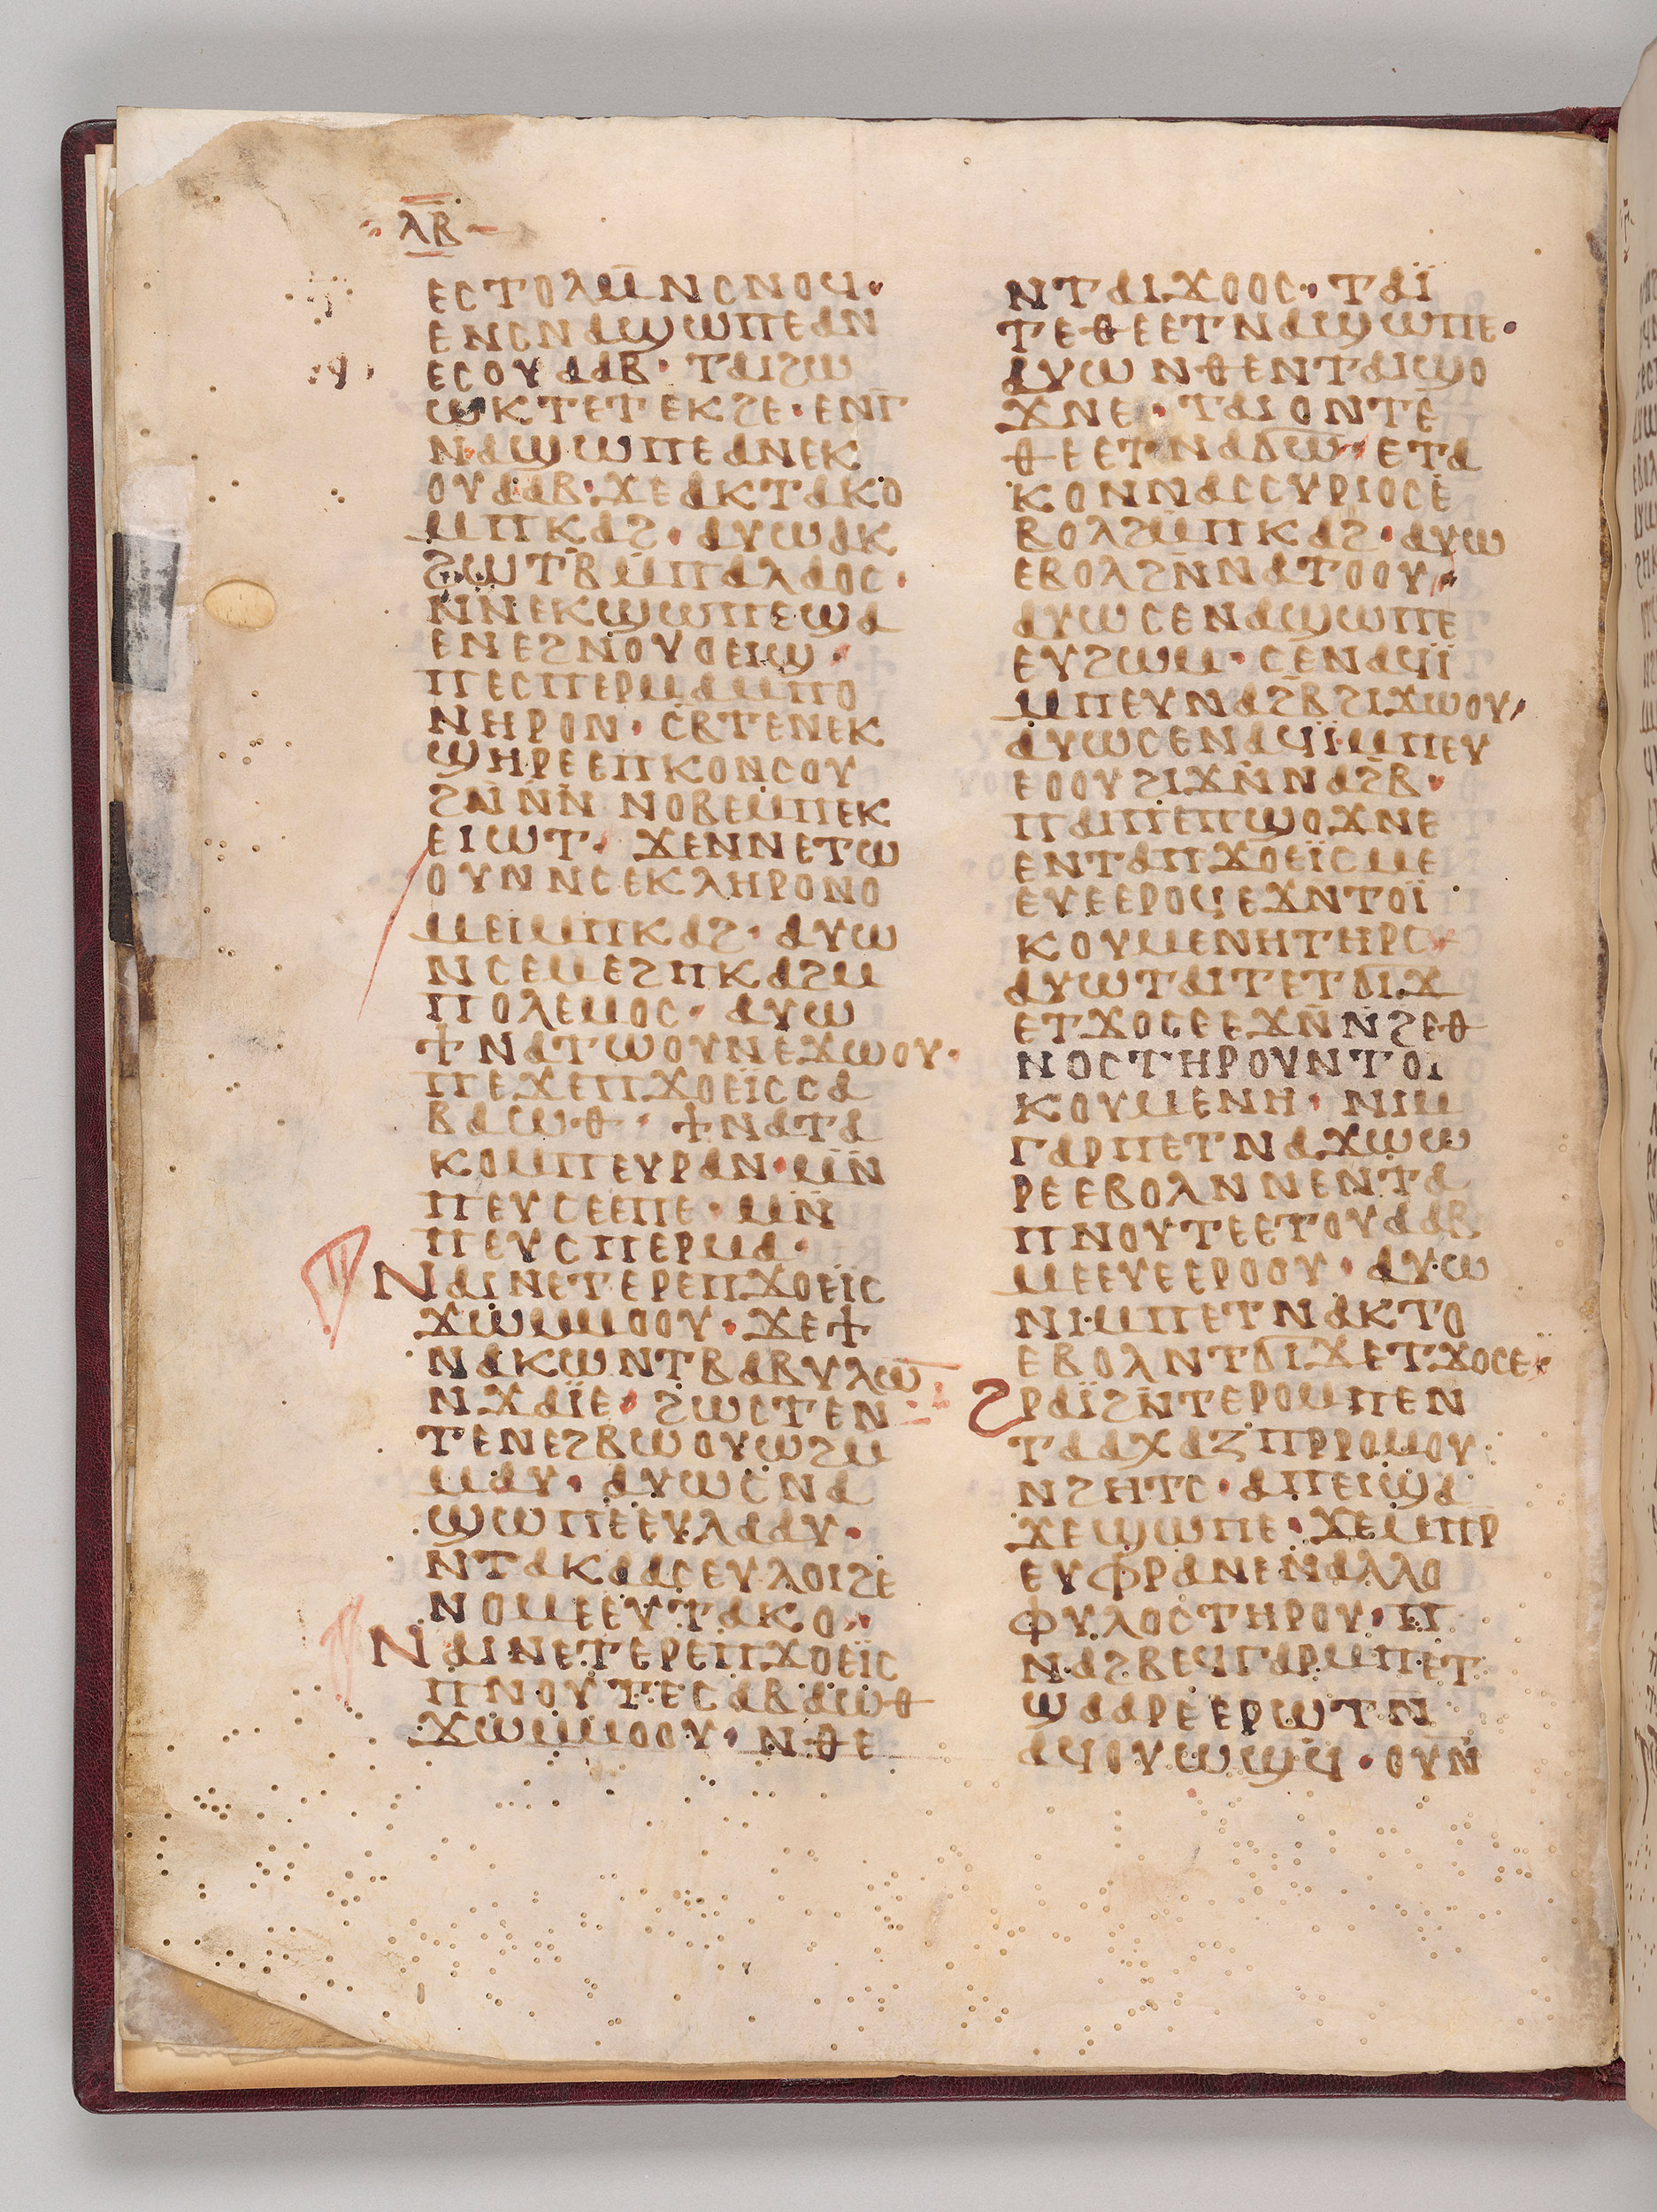 ⲗ̅ⲃ̅
ⲉⲥⲧⲟⲗⲙ̅ⲛⲥⲛⲟϥ·
ⲉⲛⲥⲛⲁϣⲱⲡⲉⲁⲛ
ⲉⲥⲟⲩⲁⲁⲃ· ⲧⲁⲓϩⲱ
ⲱⲕⲧⲉⲧⲉⲕϩⲉ· ⲉⲛⲅ̅
ⲛⲁϣⲱⲡⲉⲁⲛⲉⲕ
ⲟⲩⲁⲁⲃ·ϫⲉⲁⲕⲧⲁⲕⲟ
ⲙⲡⲕⲁϩ· ⲁⲩⲱⲁⲕ
ϩⲱⲧⲃ̅ⲙ̅ⲡⲁⲗⲁⲟⲥ·
ⲛ̅ⲛⲉⲕϣⲱⲡⲉϣⲁ
ⲉⲛⲉϩⲛⲟⲩⲟⲉⲓϣ·
ⲡⲉⲥⲡⲉⲣⲙⲁⲙⲡⲟ
ⲛⲏⲣⲟⲛ· ⲥ̅ⲃⲧⲉⲛⲉⲕ
ϣⲏⲣⲉⲉⲡⲕⲟⲛⲥⲟⲩ
ϩⲛ̅ⲛ̅ ⲛⲟⲃⲉⲙ̅ⲡⲉⲕ
ⲉⲓⲱⲧ· ϫⲉⲛⲛⲉⲧⲱ
ⲟⲩⲛⲛⲥⲉⲕⲗⲏⲣⲟⲛⲟ
ⲙⲉⲓⲙⲡⲕⲁϩ· ⲁⲩⲱ
ⲛⲥⲉⲙⲉϩⲡⲕⲁϩⲙ
ⲡⲟⲗⲉⲙⲟⲥ· ⲁⲩⲱ
ϯⲛⲁⲧⲱⲟⲩⲛⲉϫⲱⲟⲩ·
ⲡⲉϫⲉⲡϫⲟⲉⲓ̈ⲥⲥⲁ
ⲃⲁⲱⲑ· ϯⲛⲁⲧⲁ
ⲕⲟⲙⲡⲉⲩⲣⲁⲛ·ⲙ̅ⲛ̅
ⲡⲉⲩⲥⲉⲉⲡⲉ· ⲙ̅ⲛ̅
ⲡⲉⲩⲥⲡⲉⲣⲙⲁ·
ⲛⲁⲓⲛⲉⲧⲉⲣⲉⲡϫⲟⲉⲓ̈ⲥ
ϫⲱⲙⲙⲟⲟⲩ· ϫⲉϯ
ⲛⲁⲕⲱⲛⲧⲃⲁⲃⲩⲗⲱ
ⲛϫⲁⲓ̈ⲉ· ϩⲱⲥⲧⲉⲛ
ⲧⲉⲛⲉϩⲃⲱⲟⲩⲱϩⲙ
ⲙⲁⲩ· ⲁⲩⲱⲥ̅ⲛⲁ
ϣⲱⲡⲉⲉⲩⲗⲁⲁⲩ·
ⲛⲧⲁⲕⲁⲁⲥⲉⲩⲗⲟⲓϩⲉ
ⲛⲟⲙⲉⲉⲩⲧⲁⲕⲟ·
ⲛⲁⲓⲛⲉⲧⲉⲣⲉⲡϫⲟⲉⲓ̈ⲥ
ⲡⲛⲟⲩⲧⲉⲥⲁⲃⲁⲱⲑ
ϫⲱⲙⲙⲟⲟⲩ· ⲛⲑⲉ
ⲛⲧⲁⲓϫⲟⲟⲥ· ⲧⲁⲓ̈
ⲧⲉⲑⲉⲉⲧⲛⲁϣⲱⲡⲉ·
ⲁⲩⲱ ⲛⲑⲉⲛⲧⲁⲓϣⲟ
ϫⲛⲉ· ⲧⲁⲓⲟⲛⲧⲉ
ⲑⲉⲉⲧⲛⲁϭⲱ· ⲉⲧⲁ
ⲕⲟⲛⲛⲁⲥⲥⲩⲣⲓⲟⲥⲉ
ⲃⲟⲗϩⲙ̅ⲡⲕⲁϩ· ⲁⲩⲱ
ⲉⲃⲟⲗϩⲛ̅ⲛⲁⲧⲟⲟⲩ·
ⲁⲩⲱⲥⲉⲛⲁϣⲱⲡⲉ
ⲉⲩϩⲱⲙ· ⲥⲉⲛⲁϥⲓ̈
ⲙⲡⲉⲩⲛⲁϩⲃ̅ϩⲓϫⲱⲟⲩ·
ⲁⲩⲱⲥⲉⲛⲁϥⲓ̈ⲙⲡⲉⲩ
ⲉⲟⲟⲩϩⲓϫⲛ̅ⲛⲁϩ̅ⲃ·
ⲡⲁⲓⲡⲉⲡϣⲟϫⲛⲉ
ⲉⲛⲧⲁⲡϫⲟⲉⲓ̈ⲥⲙⲉ
ⲉⲩⲉⲉⲣⲟϥⲉϫⲛⲧⲟⲓ̈
ⲕⲟⲩⲙⲉⲛⲏⲧⲏⲣⲥ·
ⲁⲩⲱⲧⲁⲓⲧⲉⲧϭⲓϫ
ⲉⲧϫⲟⲥⲉⲉϫⲛ̅ⲛ̅ϩⲉⲑ
ⲛⲟⲥⲧⲏⲣⲟⲩⲛⲧⲟⲓ
ⲕⲟⲩⲙⲉⲛⲏ· ⲛⲓⲙ
ⲅⲁⲣⲡⲉⲧⲛⲁϫⲱⲱ
ⲣⲉⲉⲃⲟⲗⲛⲛⲉⲛⲧⲁ
ⲡⲛⲟⲩⲧⲉⲉⲧⲟⲩⲁⲁⲃ
ⲙⲉⲉⲩⲉⲉⲣⲟⲟⲩ· ⲁⲩⲱ
ⲛⲓⲙⲡⲉⲧⲛⲁⲕⲧⲟ
ⲉⲃⲟⲗⲛⲧϭⲓϫⲉⲧϫⲟⲥⲉ·
ϩⲣⲁⲓ̈ϩⲛ̅ⲧⲉⲣⲟⲙⲡⲉⲛ
ⲧⲁⲁⲭⲁⲍⲡⲣⲣⲟⲙⲟⲩ
ⲛϩⲏⲧⲥ· ⲁⲡⲉⲓϣⲁ
ϫⲉϣⲱⲡⲉ· ϫⲉⲙⲡⲣ
ⲉⲩⲫⲣⲁⲛⲉⲛⲁⲗⲗⲟ
ⲫⲩⲗⲟⲥⲧⲏⲣⲟⲩ· ⲡ
ⲛⲁϩⲃⲉϥⲅⲁⲣⲙⲡⲉⲧ
ϣⲁⲁⲣⲉⲉⲣⲱⲧⲛ̅
ⲁϥⲟⲩⲱϣϥ̅· ⲟⲩⲛ̅